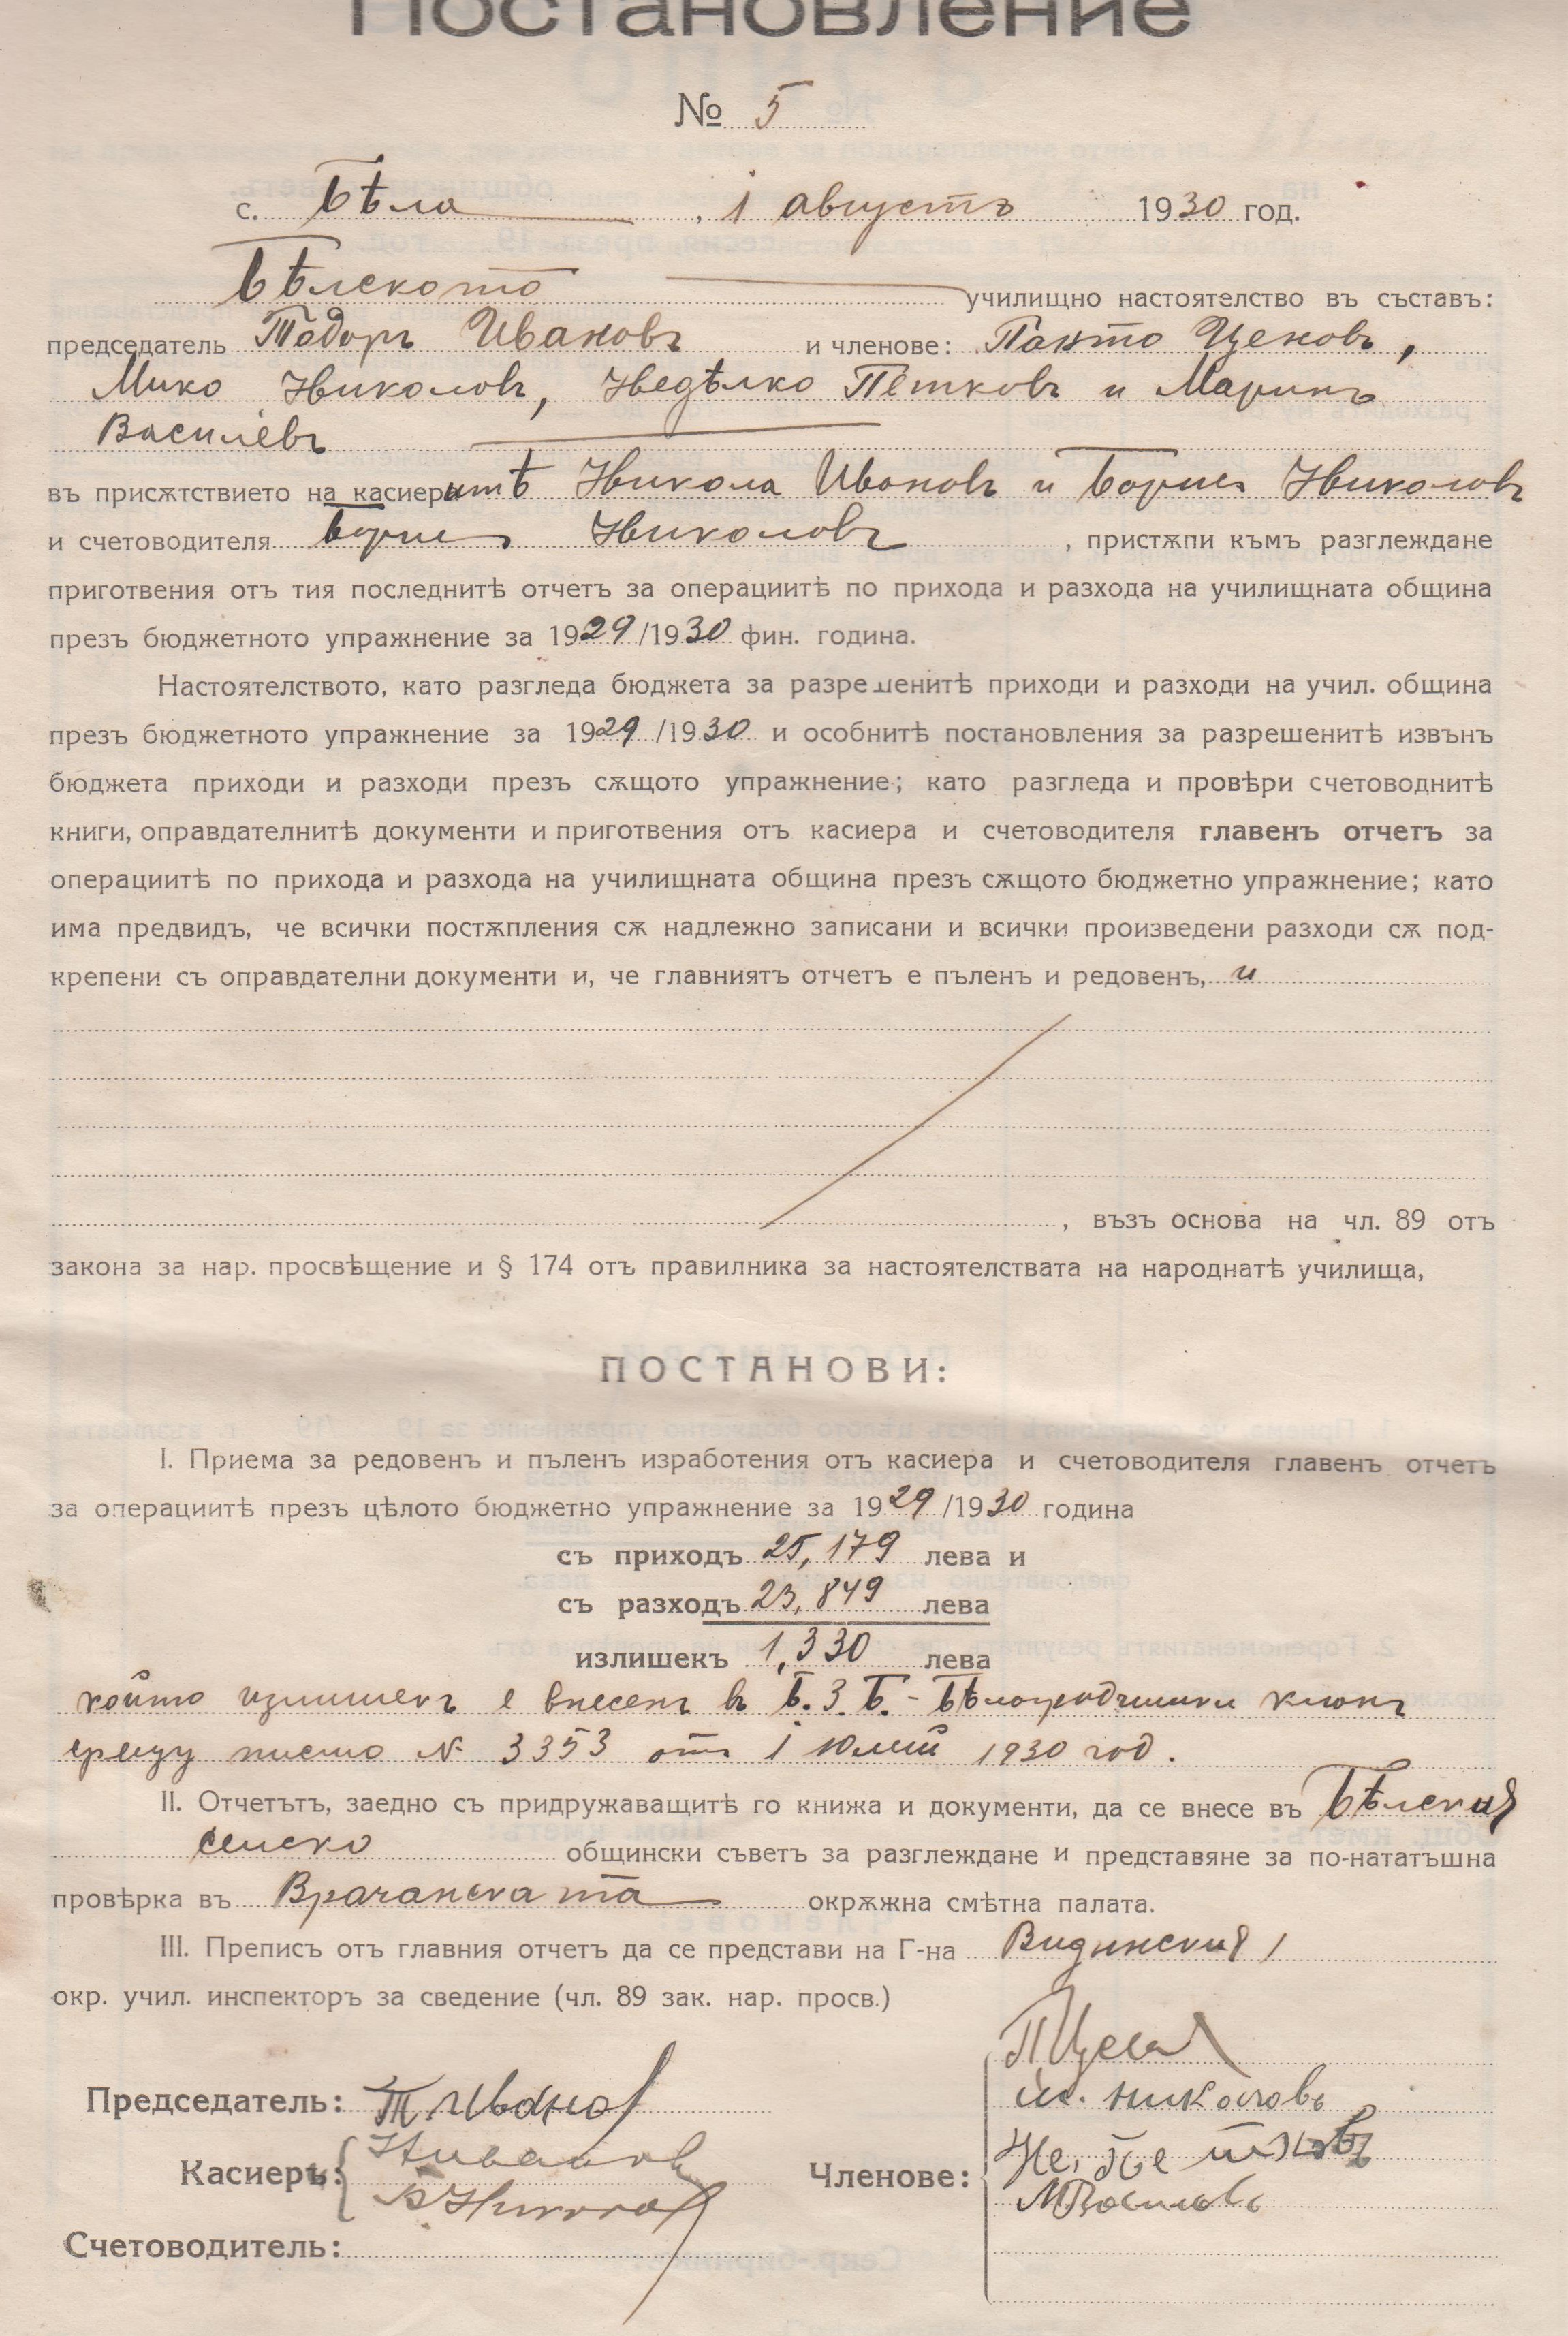 Постановление
№ 5
с. Бѣла, 1 августъ 1930 год.
Бѣлското училищно настоятелство въ съставъ:
председатель Тодоръ Ивановъ и членове: Панто Ценовъ,
Мико Николовъ, Недѣлко Петковъ и Маринъ
Василевъ
въ присѫтствието на касиеритѣ Никола Ивановъ и Борисъ Николовъ
и счетоводителя Борисъ Николовъ, пристѫпи къмъ разглеждане
приготвения отъ тия последнитѣ отчетъ за операциитѣ по прихода и разхода на училищната община
презъ бюджетното упражнение за 1929/1930 фин. година.
Настоятелството, като разгледа бюджета за разрешенитѣ приходи и разходи на учил. община
презъ бюджетното упражнение за 1929/1930 и особнитѣ постановления за разрешенитѣ извънъ
бюджета приходи и разходи презъ сѫщото упражнение; като разгледа и провѣри счетоводнитѣ
книги, оправдателнитѣ документи и приготвения отъ касиера и счетоводителя главенъ отчетъ за
операциитѣ по прихода и разхода на училищната община презъ сѫщото бюджетно упражнение; като
има предвидъ, че всички постѫпления сѫ надлежно записани и всички произведени разходи сѫ под-
крепени съ оправдателни документи и, че главниятъ отчетъ е пъленъ и редовенъ, и
, възъ основа на чл. 89 отъ
закона за нар. просвѣщение и § 174 отъ правилника за настоятелствата на народнатѣ училища,
ПОСТАНОВИ:
I. Приема за редовенъ и пъленъ изработения отъ касиера и счетоводителя главенъ отчетъ
за операциитѣ презъ цѣлото бюджетно упражнение за 1929/1930 година
съ приходъ 25,179 лева и
съ разходъ 23,849 лева
излишекъ 1,330 лева
който излишекъ е внесенъ въ Б.З.Б. - Бѣлоградчишки клонъ
срещу писмо № 3353 отъ 1 юлий 1930 год.
II. Отчетътъ, заедно съ придружаващитѣ го книжа и документи, да се внесе въ Бѣлския
селско общински съветъ за разглеждане и представяне за по-нататъшна
провѣрка въ Врачанската окрѫжна смѣтна палата.
III. Преписъ отъ главния отчетъ да се представи на Г-на Видинския
окр. учил. инспекторъ за сведение (чл. 89 зак. нар. просв.)
Председатель: Т. Иванов
Касиеръ: Н Иванов
Б. Николов
Счетоводитель:
Членове: П Ценов
М. Николовъ
Не. Петковъ
М Василевъ